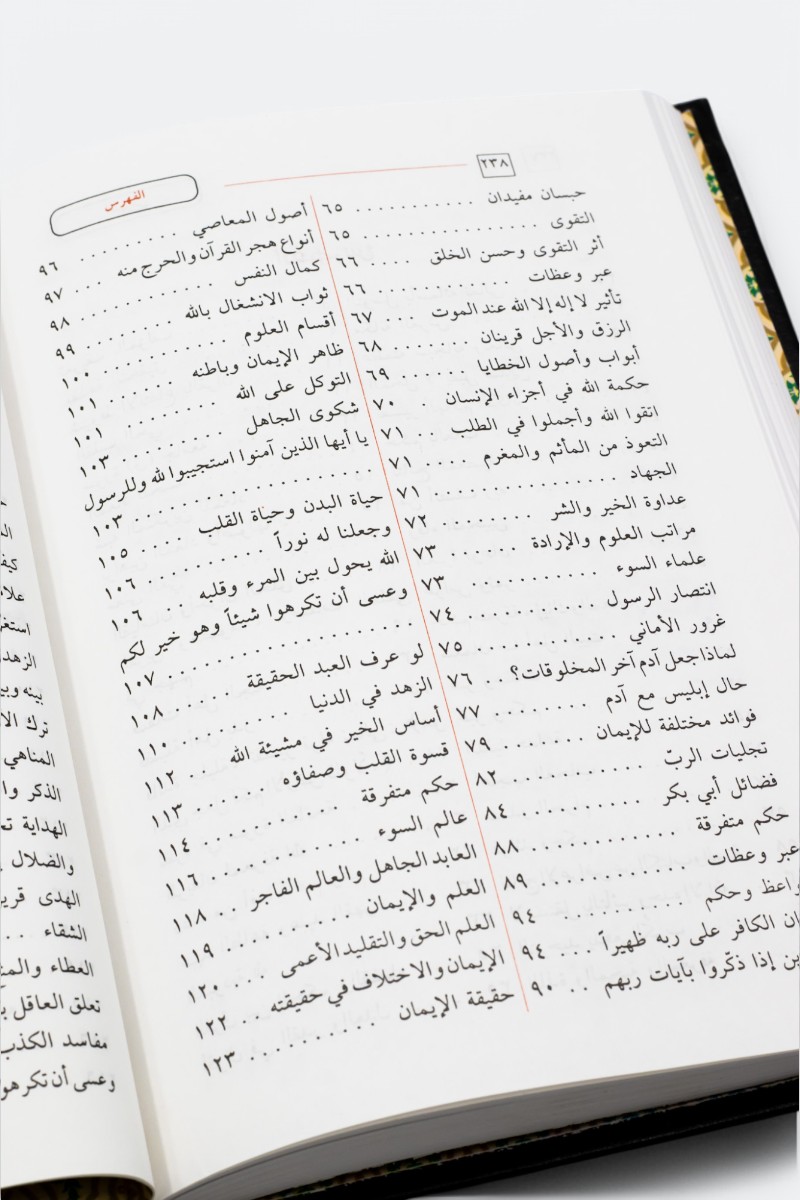 ٢٣٨
الفهرس
حبسان مفيدان . . . . . . . . . . . ٦٥
التقوى . . . . . . . . . . . . . . . . ٦٥
أثر التقوى وحسن الخلق . . . . ٦٦
عبر وعظات . . . . . . . . . . . . ٦٦
تأثير لا إله إلا الله عند الموت . . . ٦٧
الرزق والأجل قرينان . . . . . . . ٦٨
أبواب وأصول الخطايا . . . . . . ٦٩
حكمة الله في أجزاء الإنسان . ٧٠
اتقوا الله وأجملوا في الطلب . . ٧١
التعوذ من المأثم والمغرم . . . . ٧١
الجهاد . . . . . . . . . . . . . . . . ٧١
عداوة الخير والشر . . . . . . . . ٧٢
مراتب العلوم والإرادة . . . . . . ٧٣
علماء السوء . . . . . . . . . . . ٧٣
انتصار الرسول . . . . . . . . . . ٧٤
غرور الأماني . . . . . . . . . . . ٧٥
لماذا جعل آدم آخر المخلوقات؟ . . ٧٦
حال إبليس مع آدم . . . . . . . . ٧٧
فوائد مختلفة للإيمان . . . . . . . ٧٩
تجليات الربّ . . . . . . . . . . . ٨٢
فضائل أبي بكر . . . . . . . . . . ٨٤
حكم متفرقة . . . . . . . . . . . . ٨٨
عبر وعظات . . . . . . . . . . . . ٨٩
وحكم . . . . . . . . . . ٩٤
الكافر على ربه ظهيراً . . . ٩٤
إذا ذكّروا بآيات ربهم . . ٩٠
أصول المعاصي . . . . . . . . . ٩٦
أنواع هجر القرآن والحرج منه . . . ٩٧
كمال النفس . . . . . . . . . . . . ٩٨
ثواب الانشغال بالله . . . . . . . . ٩٩
أقسام العلوم . . . . . . . . . . . ١٠٠
ظاهر الإيمان وباطنه . . . . . . ١٠١
التوكل على الله . . . . . . . . ١٠١
شكوى الجاهل . . . . . . . . . ١٠٣
يا أيها الذين آمنوا استجيبوا لله وللرسول
. . . . . . . . . . . . . . . . . . ١٠٣
حياة البدن وحياة القلب . . . . ١٠٥
وجعلنا له نوراً . . . . . . . . . . ١٠٦
الله يحول بين المرء وقلبه . . ١٠٦
وعسى أن تكرهوا شيئاً وهو خير لكم
. . . . . . . . . . . . . . . . . . ١٠٧
لو عرف العبد الحقيقة . . . . . ١٠٨
الزهد في الدنيا . . . . . . . . . ١١٠
أساس الخير في مشيئة الله . . ١١٢
قسوة القلب وصفاؤه . . . . . . ١١٣
حكم متفرقة . . . . . . . . . . . ١١٤
عالم السوء . . . . . . . . . . . . ١١٦
العابد الجاهل والعالم الفاجر . . ١١٨
العلم والإيمان . . . . . . . . . . ١١٩
العلم الحق والتقليد الأعمى . . . ١٢٠
الإيمان والاختلاف في حقيقته . . ١٢٢
حقيقة الإيمان . . . . . . . . . . ١٢٣
الزهد
ترك
المناهي
الذكر
الهداية
والضلال
الهدى
الشقاء . .
العطاء
تعلق العاقل
مفاسد الكذب
وعسى أن تكرهو